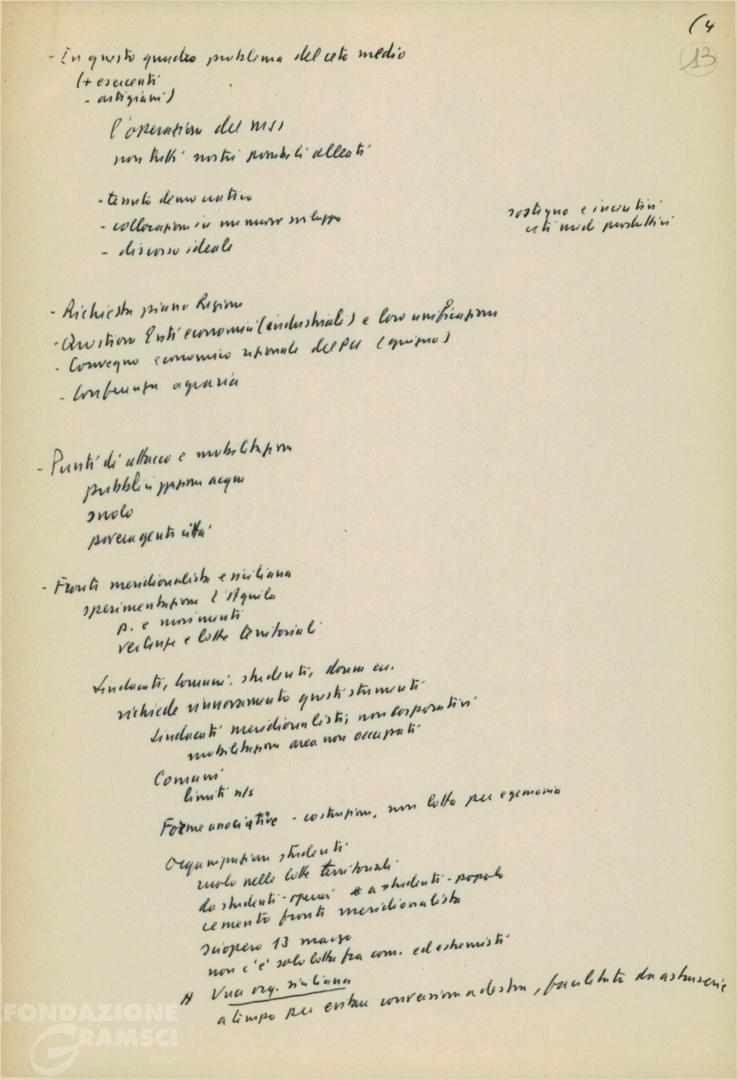 (4
13
- In questo quadro problema del ceto medio
(+ esercenti
- artigiani)
l'operazione del MSI
non tutti nostri possibili alleati
- tessuto democratico
- collocazione in un nuovo sviluppo
- discorso ideale
sostegno e incentivi
ceti medi produttivi
- Richiesta piano Regione
- Questione Enti economici (industriali) e loro unificazione
- Convegno economico regionale del PCI (giugno)
- Conferenza agraria
- Punti di attacco e mobilitazione
pubblicizzazione acque
suolo
povera gente città
- Fronte meridionalista e siciliano
sperimentazione L'Aquila
p. e movimenti
vertenze e lotte territoriali
Sindacati, Comuni, studenti, donne ecc.
richiede rinnovamento questi strumenti
Sindacati meridionalisti, non corporativi
mobilitazione area non occupati
Comuni
limiti n/s
Forme associative - costruzione, non lotta per egemonia
Organizzazione studenti
ruolo nelle lotte territoriali
da studenti-operai a studenti-popolo
cemento fronte meridionalista
sciopero 13 marzo
non c'è solo lotta fra com. ed estremisti
Una org. siciliana
a tempo per evitare conversione a destra, facilitata da